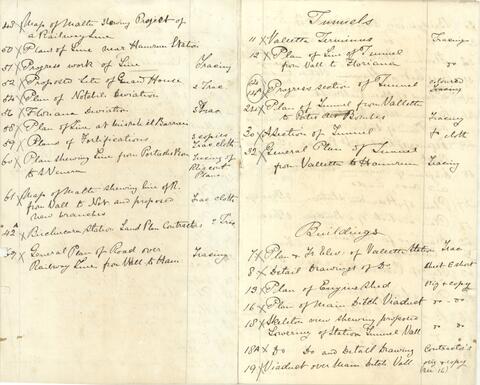 48 X Map of Malta shewing Project of
a Railway Line
50 X Plan of Line near Hamrun Station
51 X Progress work of Line Tracing
52 X Proposed Site of Guard House
54 X Plan of Notabile Deviation 2 Trac
56 X Floriana Deviation 3 Trac
58 X Plan of Line at Barracca
59 X Plans of Fortifications 3 copies Trac cloth
60 X Plan shewing Line from Portes des Bom Tracing of
to S Venera Plan
61 X Map of Malta shewing line of R. Trac cloth
from Vall to Not and proposed
new branches
42A X Birchircara Station Land Plan Contractors 2 Trac
39 X General Plan of Road over Tracing
Railway Line from Vall to Ham
Tunnels
11 X Valletta Terminus Tracing
12 X Plan of Line of Tunnel
from Vall to Floriana do
14 X Progress section of Tunnel coloured Tracing
X Plan of Tunnel from Valletta
to Portes des Bombes Tracing
30 X Section of Tunnel T cloth
32 X General Plan of Tunnel
from Valletta to Hamrun Tracing
Buildings
7 X Plan & Fr Elev of Valletta Station Trac
8 X Detail Drawings of Do
19 X Plan of Engine Shed orig & copy
16 X Plan of Main Ditch Viaduct do - do
18 X Skeleton view shewing proposed
Lowering of Station Tunnel Vall do do
18A X Do Do and Detail Drawing Contractor's
19 X Viaduct over Main Ditch Vall orig & copy
(see 16)